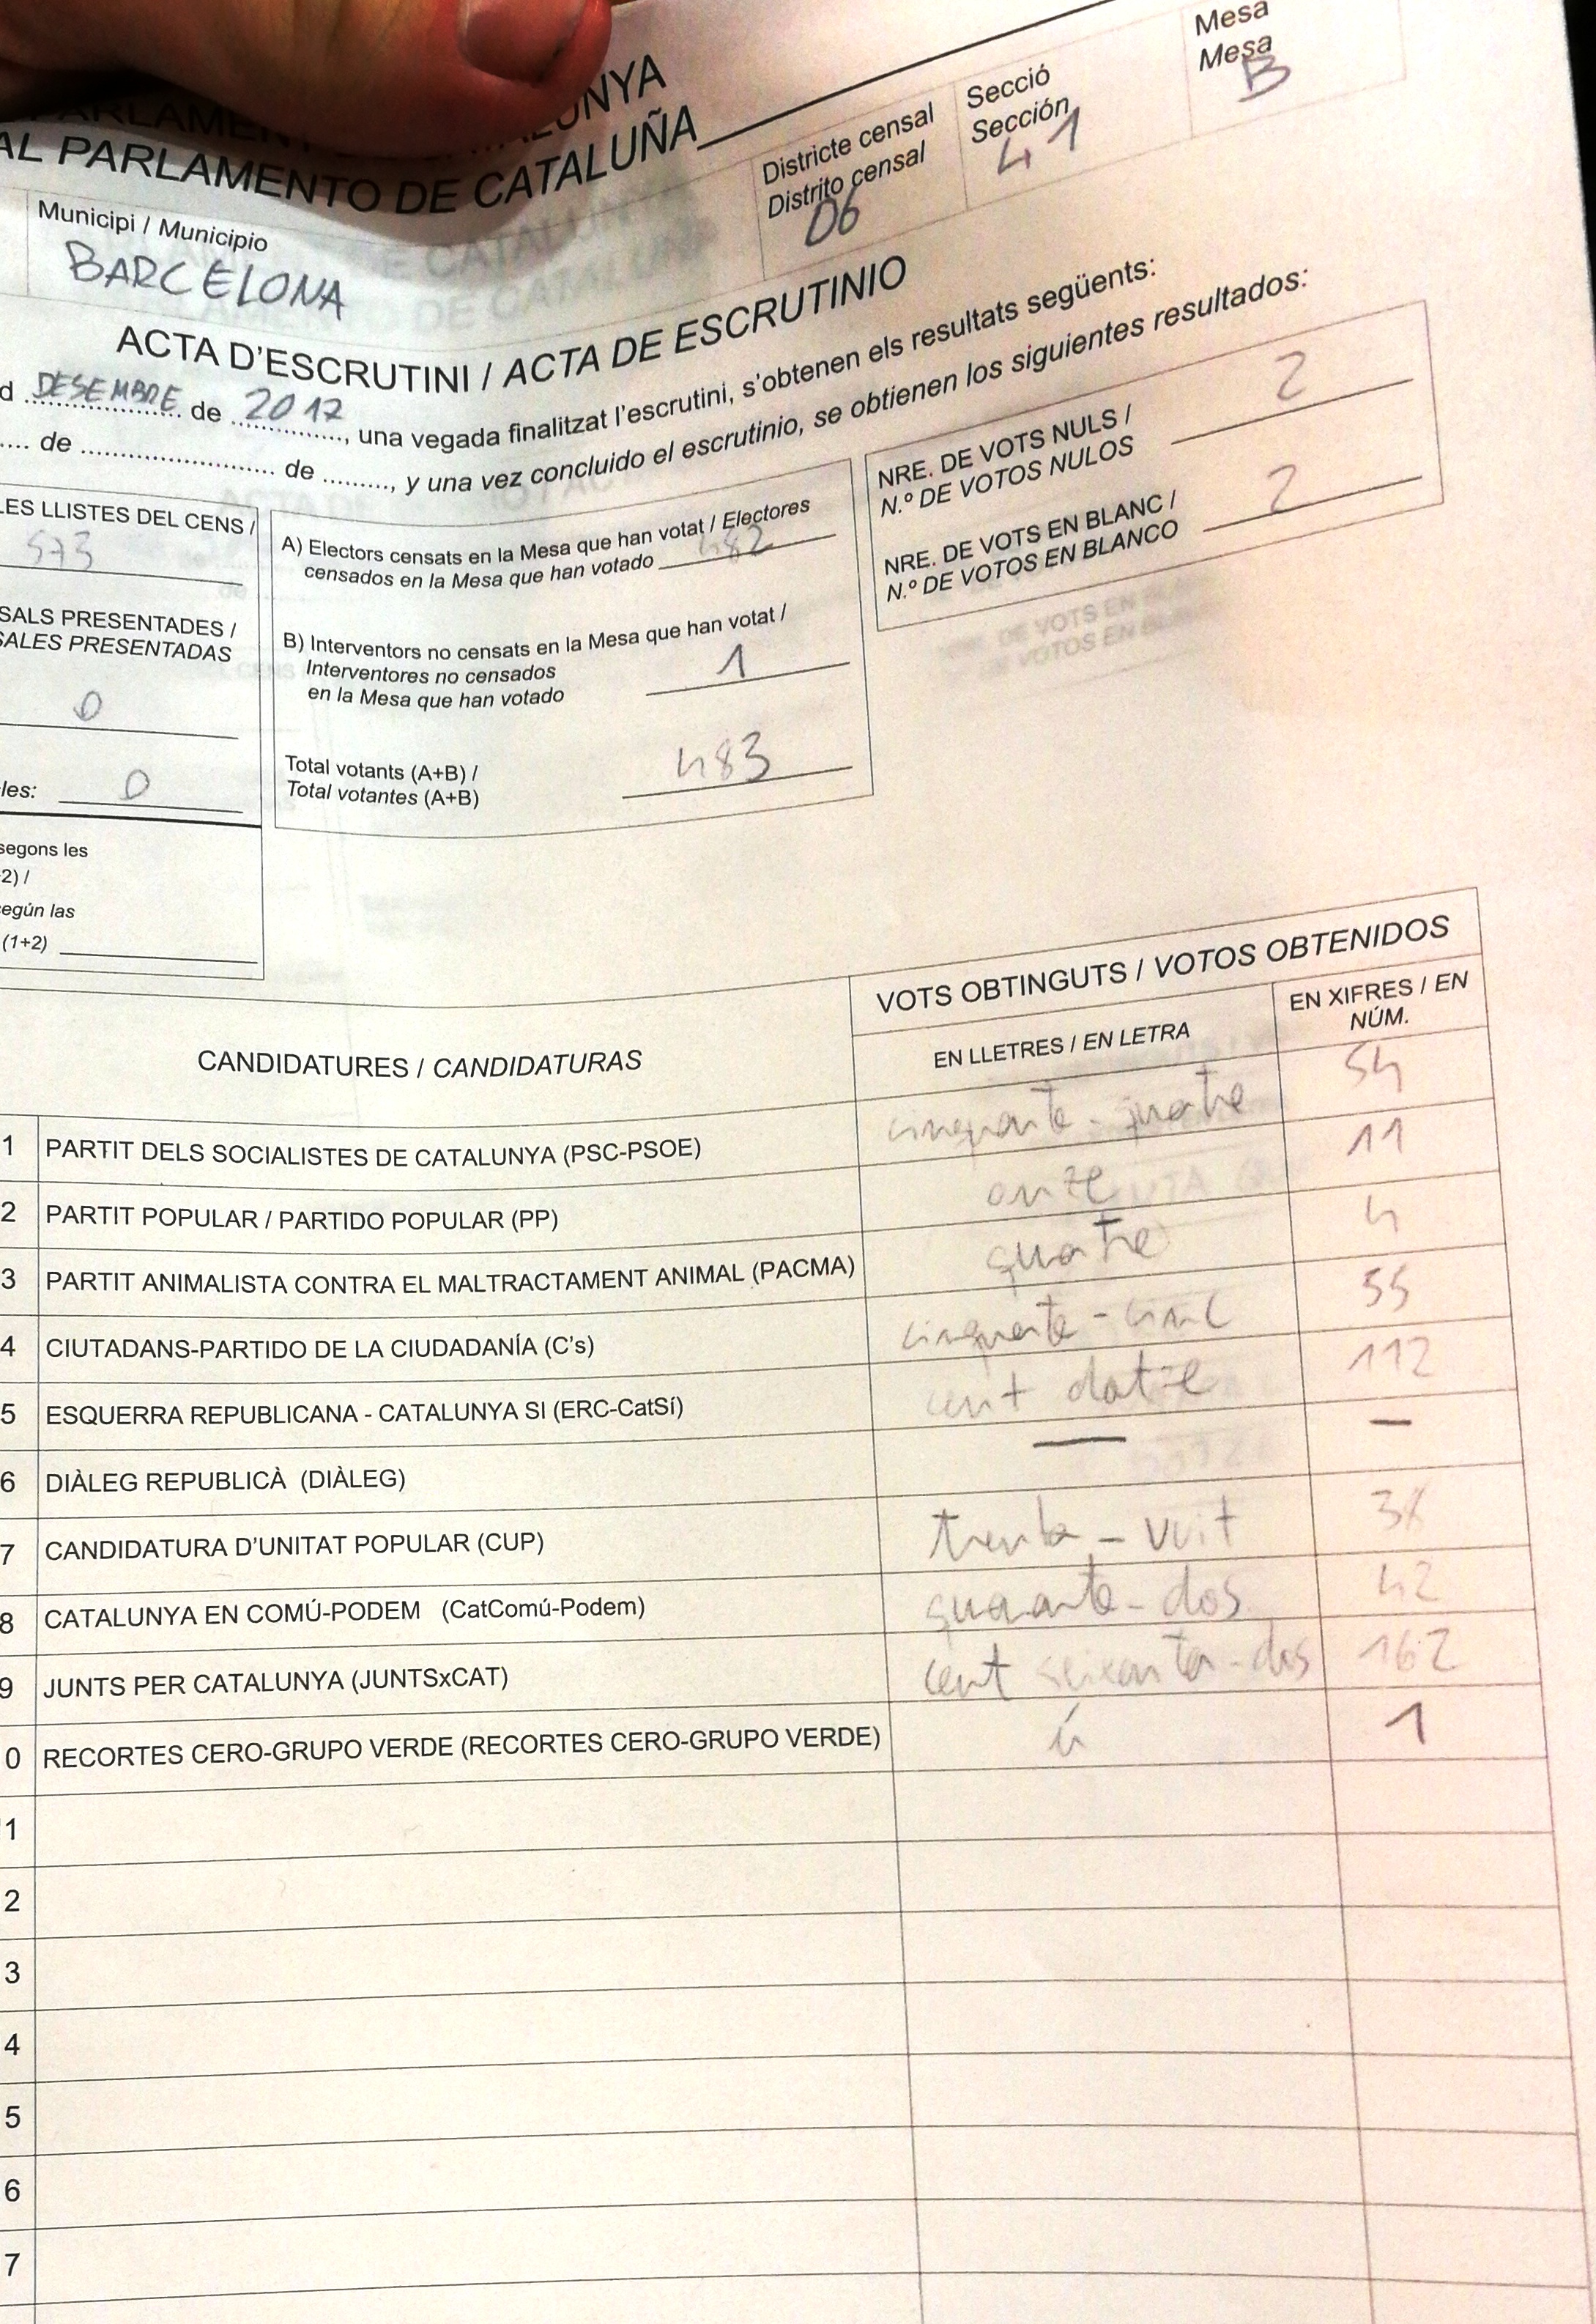 PARLAMENT
CATALUNYA
AL PARLAMENTO DE CATALUÑA
Municipi / Municipio
BARCELONA
Districte censal
Distrito censal
06
Secció
Sección
41
Mesa
Mesa
B
ACTA D'ESCRUTINI / ACTA DE ESCRUTINIO
d DESEMBRE de 2017, una vegada finalitzat l'escrutini, s'obtenen els resultats següents:
.... de ........................ de ........., y una vez concluido el escrutinio, se obtienen los siguientes resultados:
LES LLISTES DEL CENS /
573
SALS PRESENTADES /
SALES PRESENTADAS
0
les: 0
segons les
2) /
egún las
(1+2)
A) Electors censats en la Mesa que han votat / Electores
censados en la Mesa que han votado 482
B) Interventors no censats en la Mesa que han votat /
Interventores no censados
en la Mesa que han votado 1
Total votants (A+B) /
Total votantes (A+B) 483
NRE. DE VOTS NULS /
N.º DE VOTOS NULOS 2
NRE. DE VOTS EN BLANC /
N.º DE VOTOS EN BLANCO 2
VOTS OBTINGUTS / VOTOS OBTENIDOS
CANDIDATURES / CANDIDATURAS
EN LLETRES / EN LETRA
EN XIFRES / EN
NÚM.
1 PARTIT DELS SOCIALISTES DE CATALUNYA (PSC-PSOE) cinquanta-quatre 54
2 PARTIT POPULAR / PARTIDO POPULAR (PP) onze 11
3 PARTIT ANIMALISTA CONTRA EL MALTRACTAMENT ANIMAL (PACMA) quatre 4
4 CIUTADANS-PARTIDO DE LA CIUDADANÍA (C's) cinquanta-cinc 55
5 ESQUERRA REPUBLICANA - CATALUNYA SI (ERC-CatSí) cent dotze 112
6 DIÀLEG REPUBLICÀ (DIÀLEG) — —
7 CANDIDATURA D'UNITAT POPULAR (CUP) trenta-vuit 38
8 CATALUNYA EN COMÚ-PODEM (CatComú-Podem) quaranta-dos 42
9 JUNTS PER CATALUNYA (JUNTSxCAT) cent seixanta-dos 162
0 RECORTES CERO-GRUPO VERDE (RECORTES CERO-GRUPO VERDE) ú 1
1
2
3
4
5
6
7